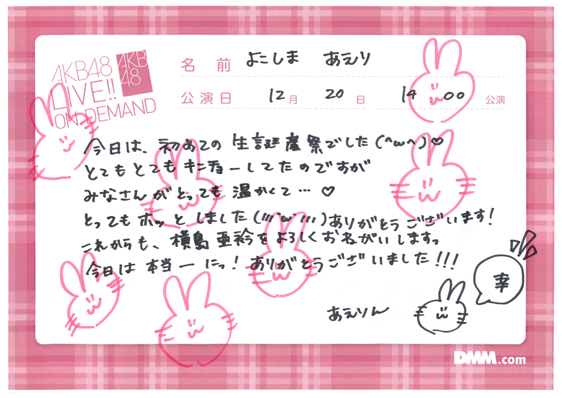 AKB48
LIVE!!
ON DEMAND
AKB
48
名前 よこしま あえり
公演日 12月 20日 14 00 公演
今日は、初めての 生誕祭でした(^ω^)♡
とてもとても キンチョーしてたのですが
みなさんが とっても 温かくて…♡
とっても ホッと しました(///'ω'///)ありがとうございます!
これからも、横島亜衿をよろしくお名がいします。
今日は 本当ーにっ! ありがとうございました!!!
あえりん
幸
DMM.com